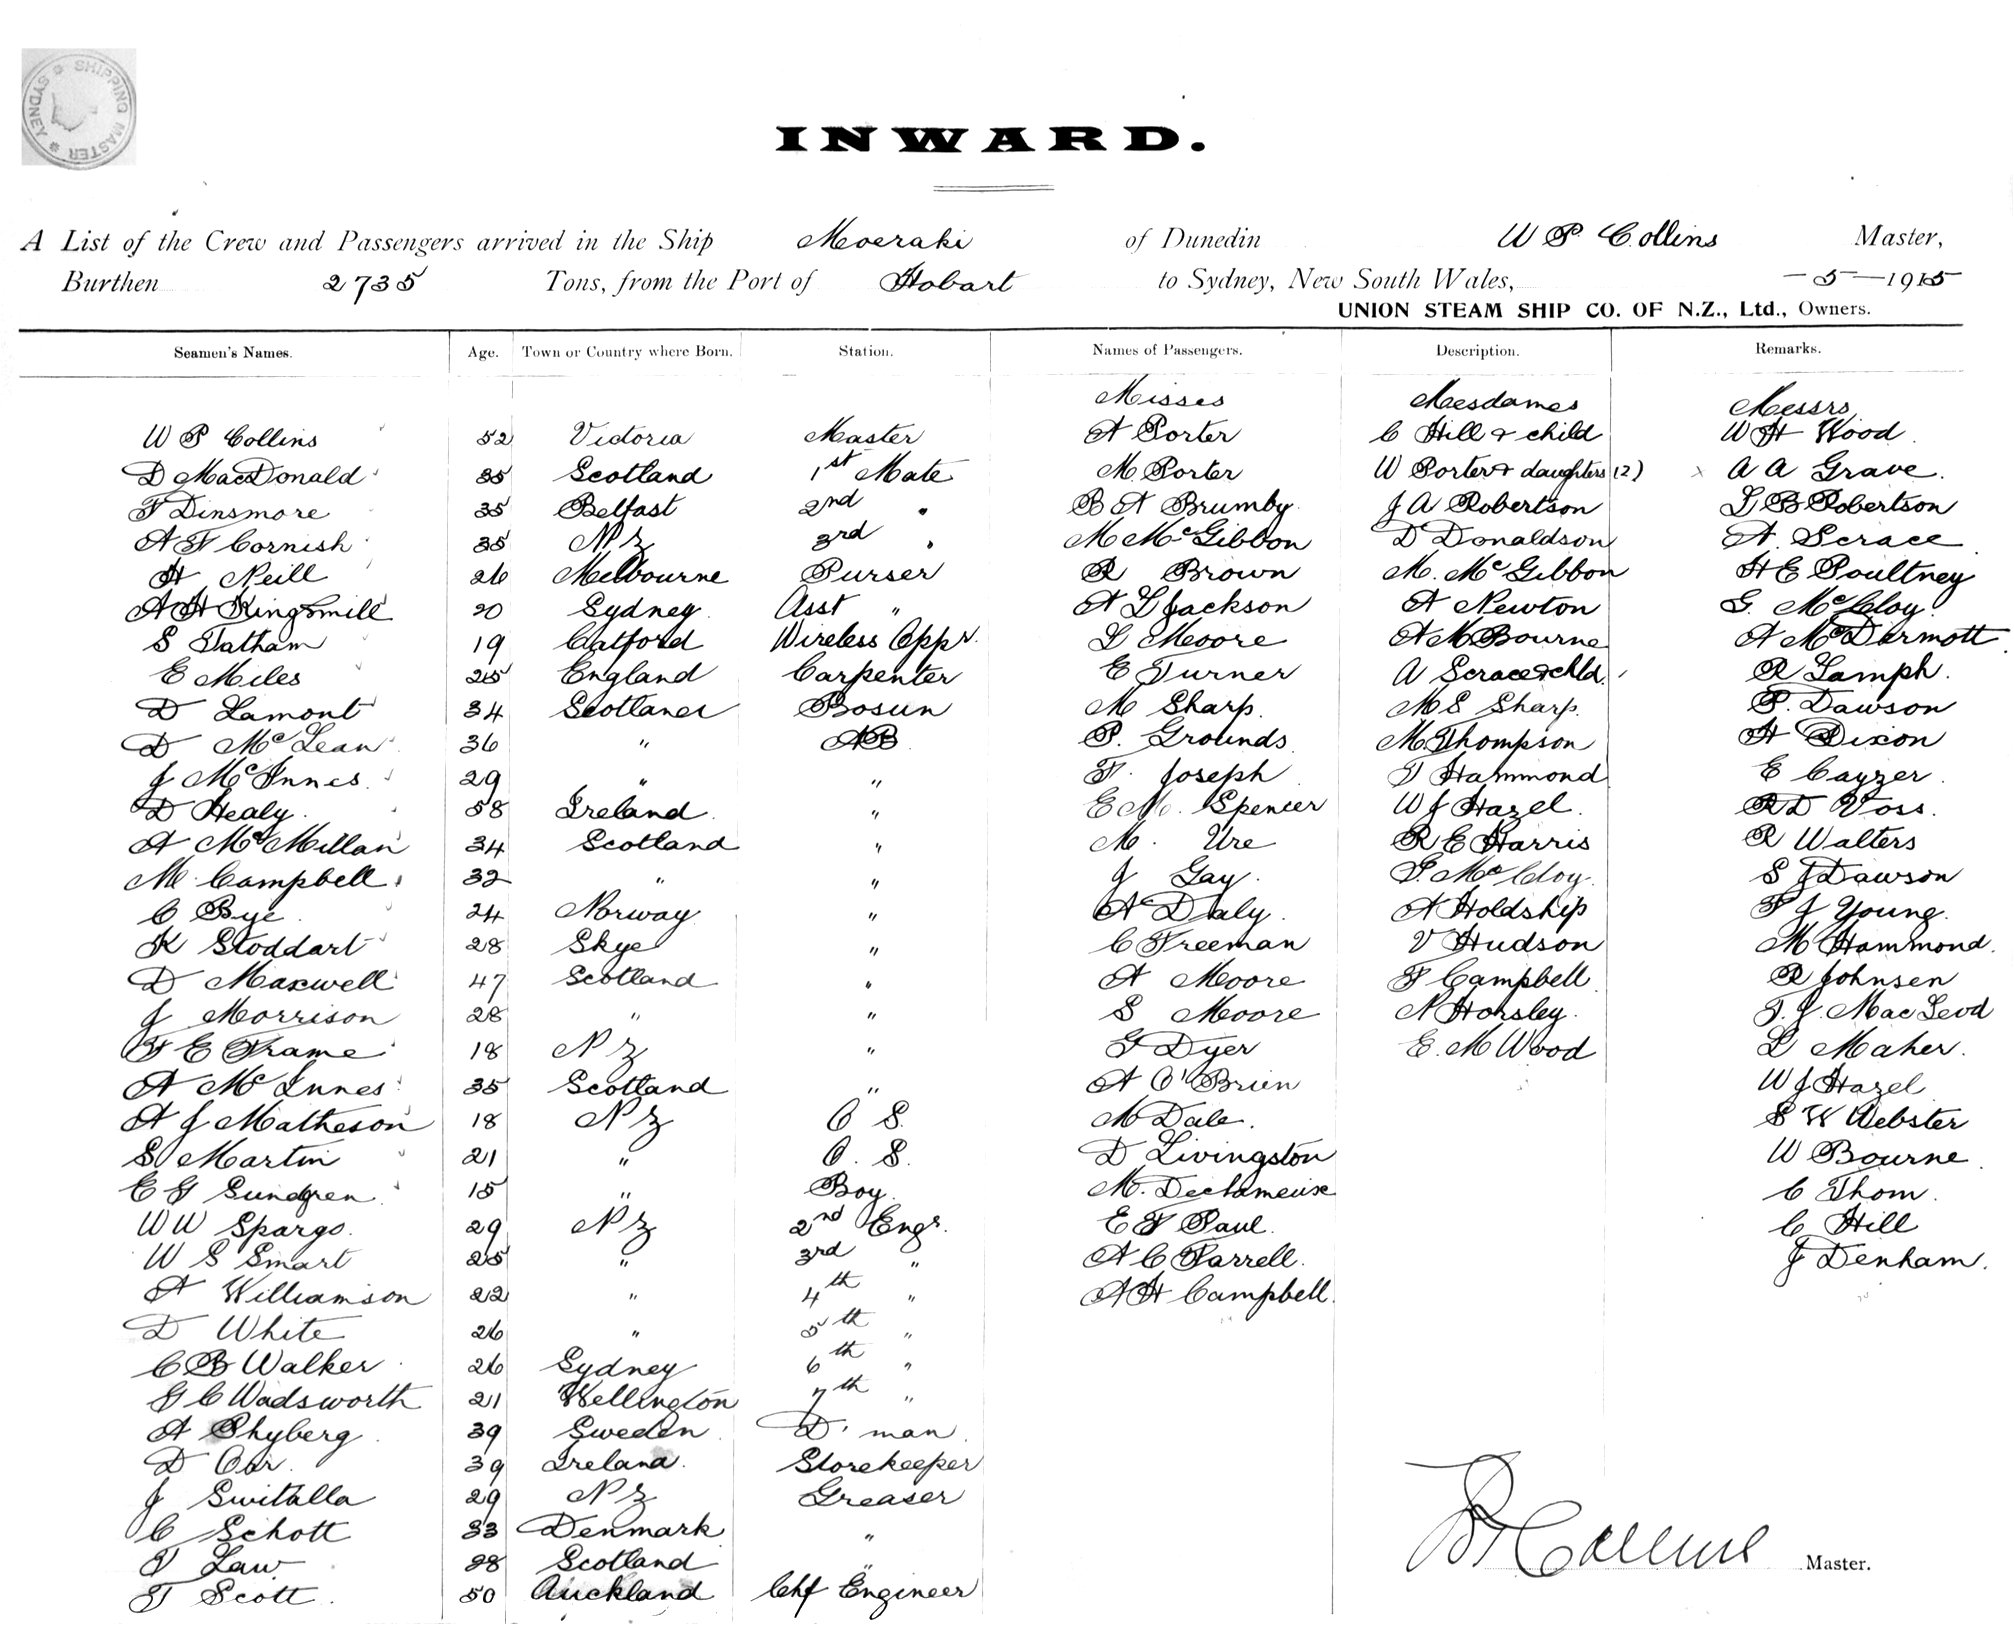 SHIPPING MASTER SYDNEY
INWARD.
A List of the Crew and Passengers arrived in the Ship Moeraki of Dunedin W P Collins Master,
Burthen 2735 Tons, from the Port of Hobart to Sydney, New South Wales, — 5 — 1915
UNION STEAM SHIP CO. OF N.Z., Ltd., Owners.
Seamen's Names. Age. Town or Country where Born. Station. Names of Passengers. Description. Remarks.
Misses Mesdames Messrs
W P Collins 52 Victoria Master A Porter C Hill & child W H Wood
D MacDonald 35 Scotland 1st Mate M. Porter W Porter & daughters (2) A A Grave.
F Dinsmore 35 Belfast 2nd " B A Brumby J A Robertson L B Robertson
A F Cornish 35 N Z 3rd " M McGibbon D Donaldson A. Scrace
H Neill 26 Melbourne Purser R Brown M. McGibbon H E Poultney
A H Kingsmill 20 Sydney Asst " A L Jackson A Newton G. McCloy.
S Tatham 19 Catford Wireless Oppr. L Moore A M Bourne A McDermott
E Miles 25 England Carpenter E Turner A Scrace & chld. R Lamph.
D Lamont 34 Scotland Bosun M Sharp. M E Sharp. P. Dawson
D McLean 36 " AB P. Grounds M. Thompson H Dixon
J McInnes 29 " " F. Joseph T Hammond E Cayzer.
D Healy. 58 Ireland. " E M. Spencer W J Hazel. R D Voss.
A McMillan 34 Scotland " M. Ure R E Harris R Walters
M. Campbell. 32 " " J Gay. G. McCloy. S J Dawson
C Bye 24 Norway " A Daly. A Holdship F J Young.
K Stoddart 28 Skye " C Freeman V Hudson M Hammond.
D Maxwell 47 Scotland " A Moore F Campbell. R Johnsen
J Morrison 28 " " S Moore N Horsley. T. J. MacLeod
F E Frame 18 N Z " G Dyer E. M Wood L Maher.
A McInnes 35 Scotland " A O'Brien W J Hazel
A J Matheson 18 N Z O S. M Dale. S W Webster
S Martin 21 " O. S. D Livingston W Bourne
E G Sundgren 15 " Boy. M. C Thom.
W W Spargo. 29 N Z 2nd Engr. E F Paul. C Hill
W S Smart 25 " 3rd " A C Farrell. J Denham.
A Williamson 22 " 4th " A H Campbell.
D White 26 " 5th "
C B Walker 26 Sydney 6th "
G C Wadsworth 21 Wellington 7th "
A Phyberg 39 Sweden D'man
D Orr. 39 Ireland. Storekeeper
J Switalla 29 N Z Greaser
C Schott 33 Denmark "
T Law 28 Scotland "
T Scott. 50 Auckland Chf Engineer
Collins Master.